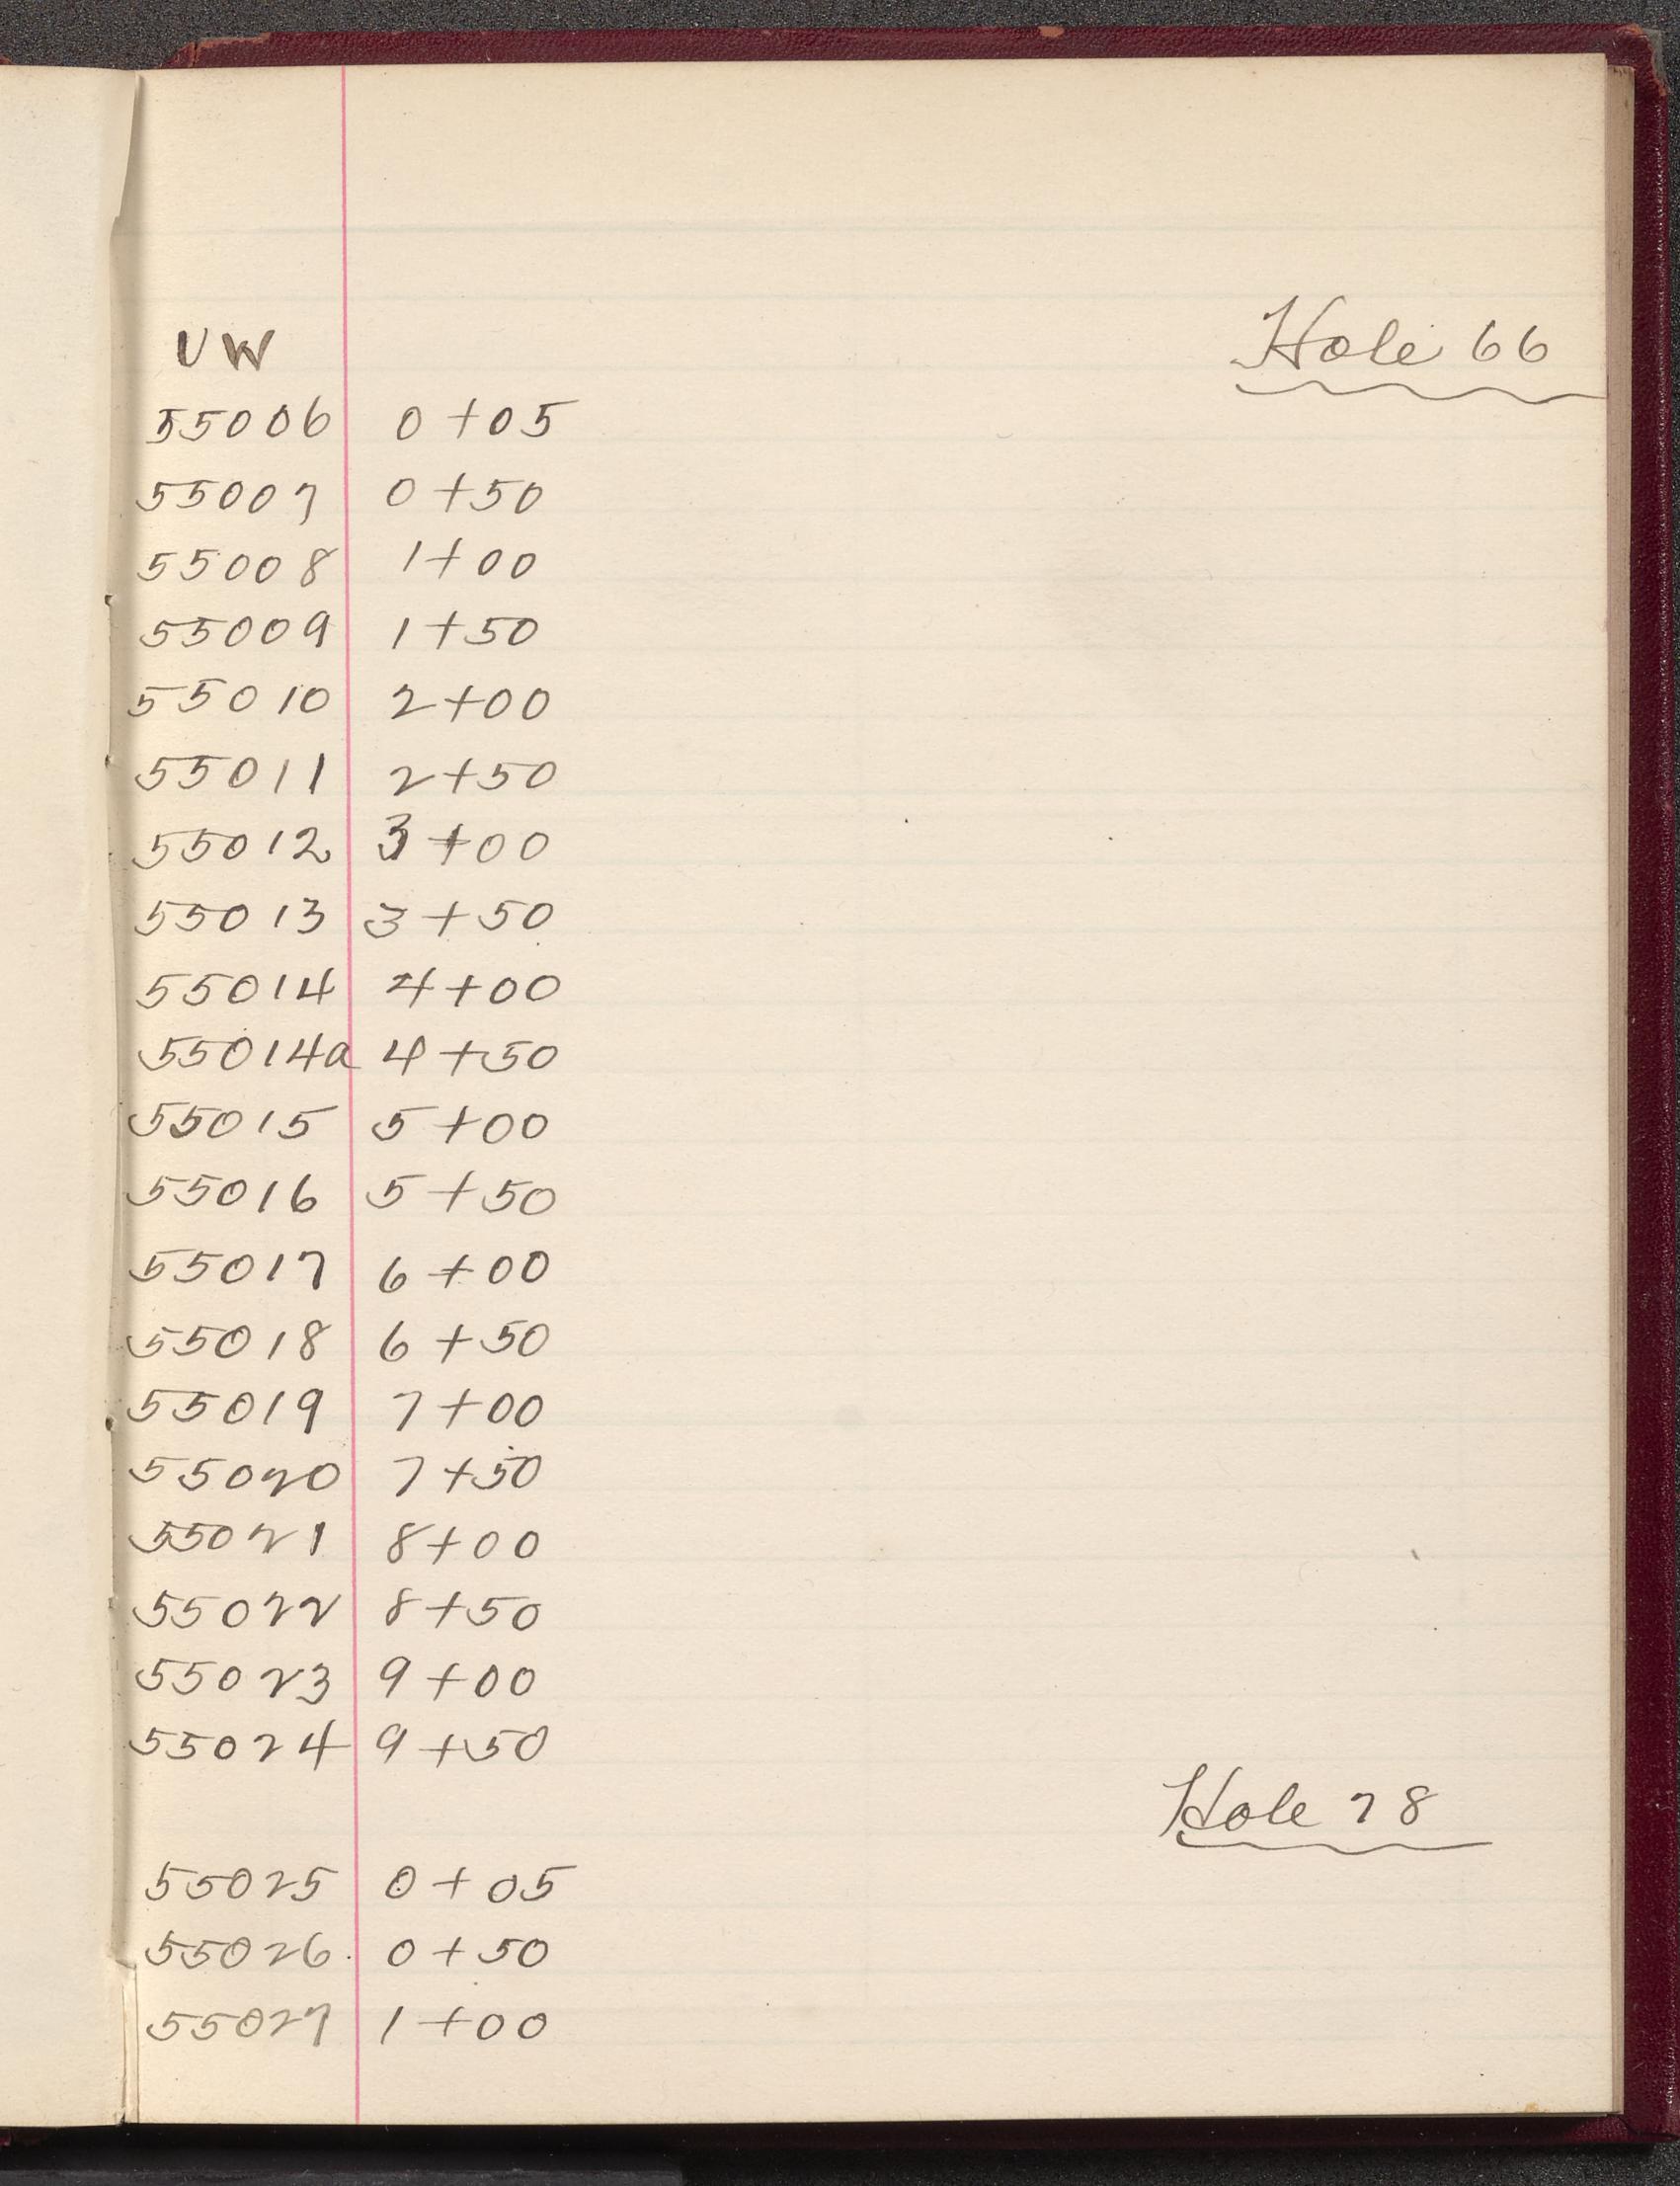 Hole 66
UW
55006 0+05
55007 0+50
55008 1+00
55009 1+50
55010 2+00
55011 2+50
55012 3+00
55013 3+50
55014 4+00
55014a 4+50
55015 5+00
55016 5+50
55017 6+00
55018 6+50
55019 7+00
55020 7+50
55021 8+00
55022 8+50
55023 9+00
55024 9+50
Hole 78
55025 0+05
55026 0+50
55027 1+00